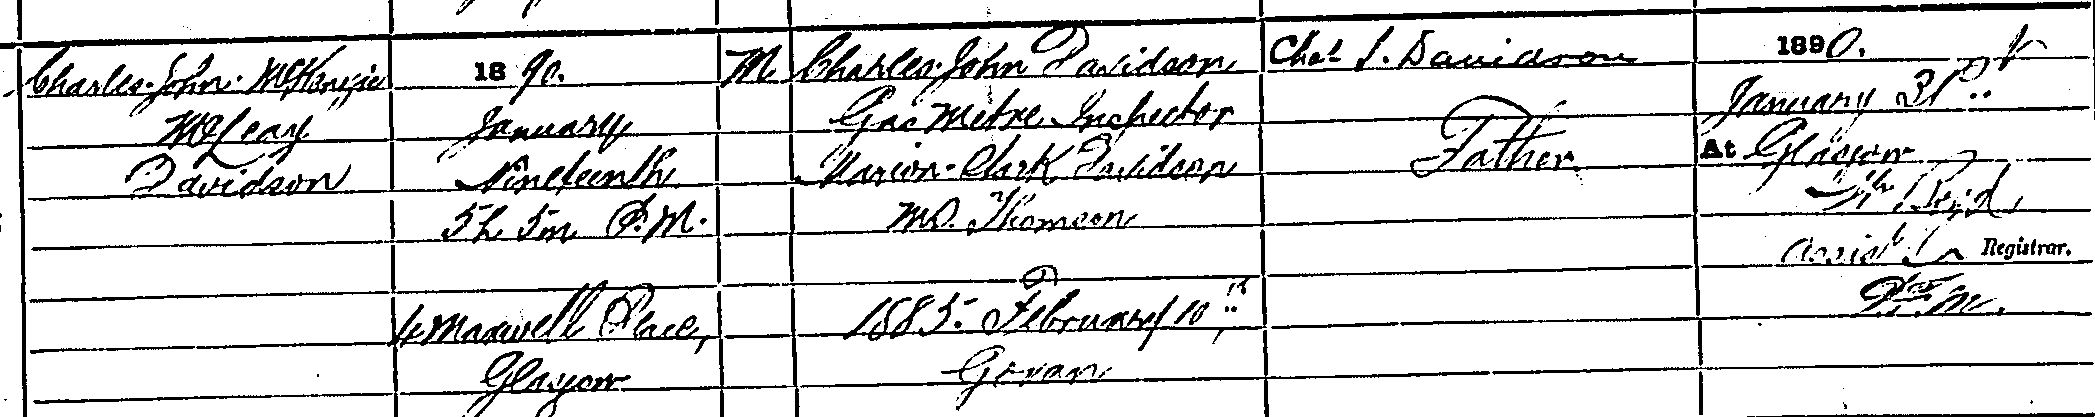 Charles John McKenzie
McLeay
Davidson
1890.
January
Nineteenth
5h 5m P.M.
4 Maxwell Place,
Glasgow
M
Charles John Davidson
Gas Metre Inspector
Marion Clark Davidson
M.S. Thomson
1885. February 10th
Govan
Chas J. Davidson
Father
1890.
January 31st
At Glasgow
Wm Reid
Assist Registrar.